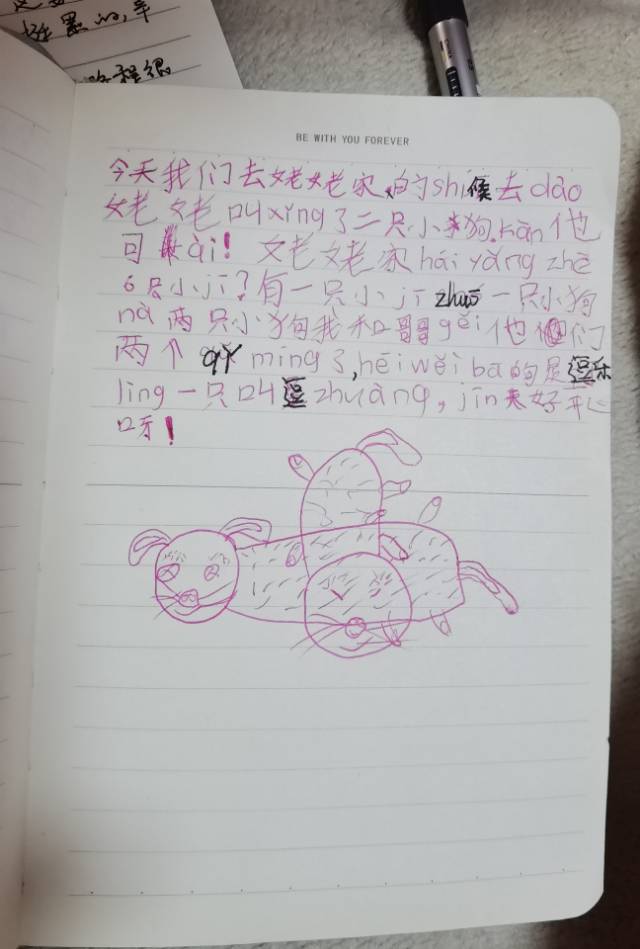 这
挺累的,辛
路程很
BE WITH YOU FOREVER
今天我们去姥姥家的shí候去dào
姥姥叫xíng了二只小狗.hǎn他
可ài! 姥姥家hái yǎng zhē
6只小jī?有一只小jī zhuō一只小狗
nà两只小狗我和哥哥gěi他们
两个qǐ míng了,hēi wěi ba的是逗乐
lìng一只叫逗zhuàng,jīn天好开心
口牙!